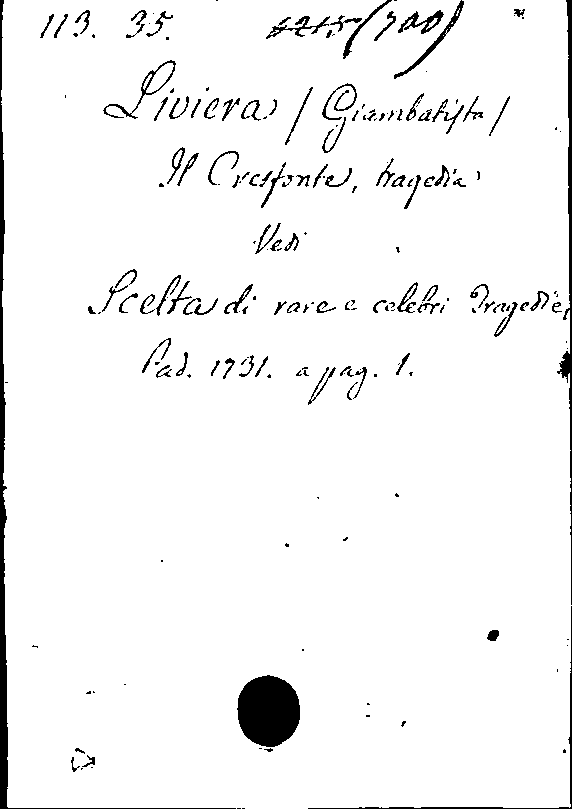 113. 35. (700)
Liviera / Giambatista /
Il Cresfonte, tragedia
Vedi
Scelta di rare e celebri Tragedie,
Pad. 1731. a pag. 1.